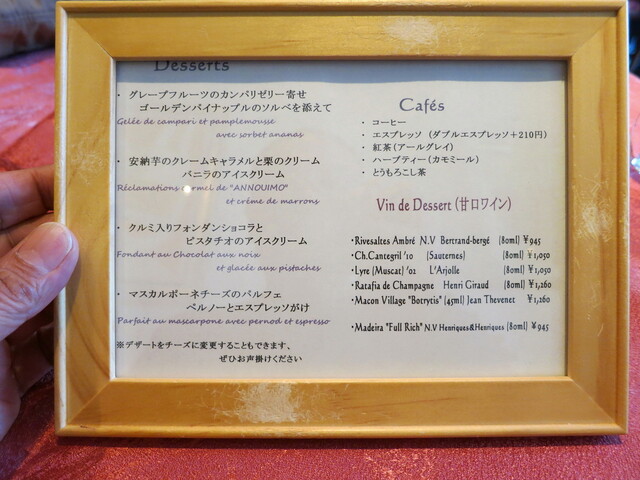 Desserts
・ グレープフルーツのカンパリゼリー寄せ
ゴールデンパイナップルのソルベを添えて
Gelée de campari et pamplemousse
avec sorbet ananas
・ 安納芋のクレームキャラメルと栗のクリーム
バニラのアイスクリーム
Réclamations carmel de "ANNOUIMO"
et crème de marrons
・ クルミ入りフォンダンショコラと
ピスタチオのアイスクリーム
Fondant au Chocolat aux noix
et glacée aux pistaches
・ マスカルポーネチーズのパルフェ
ペルノーとエスプレッソがけ
Parfait au mascarpone avec pernod et espresso
※デザートをチーズに変更することもできます、
ぜひお声掛けください
Cafés
・ コーヒー
・ エスプレッソ （ダブルエスプレッソ＋210円）
・ 紅茶（アールグレイ）
・ ハーブティー（カモミール）
・ とうもろこし茶
Vin de Dessert（甘口ワイン）
・Rivesaltes Ambré N.V Bertrand-bergé (80ml) ¥945
・Ch.Cantegril '10 (Sauternes) (80ml) ¥1,050
・Lyre (Muscat) '02 L'Arjolle (80ml) ¥1,050
・Ratafia de Champagne Henri Giraud (80ml) ¥1,260
・Macon Village "Botrytis" (45ml) Jean Thevenet ¥1,260
・Madeira "Full Rich" N.V Henriques&Henriques (80ml) ¥945